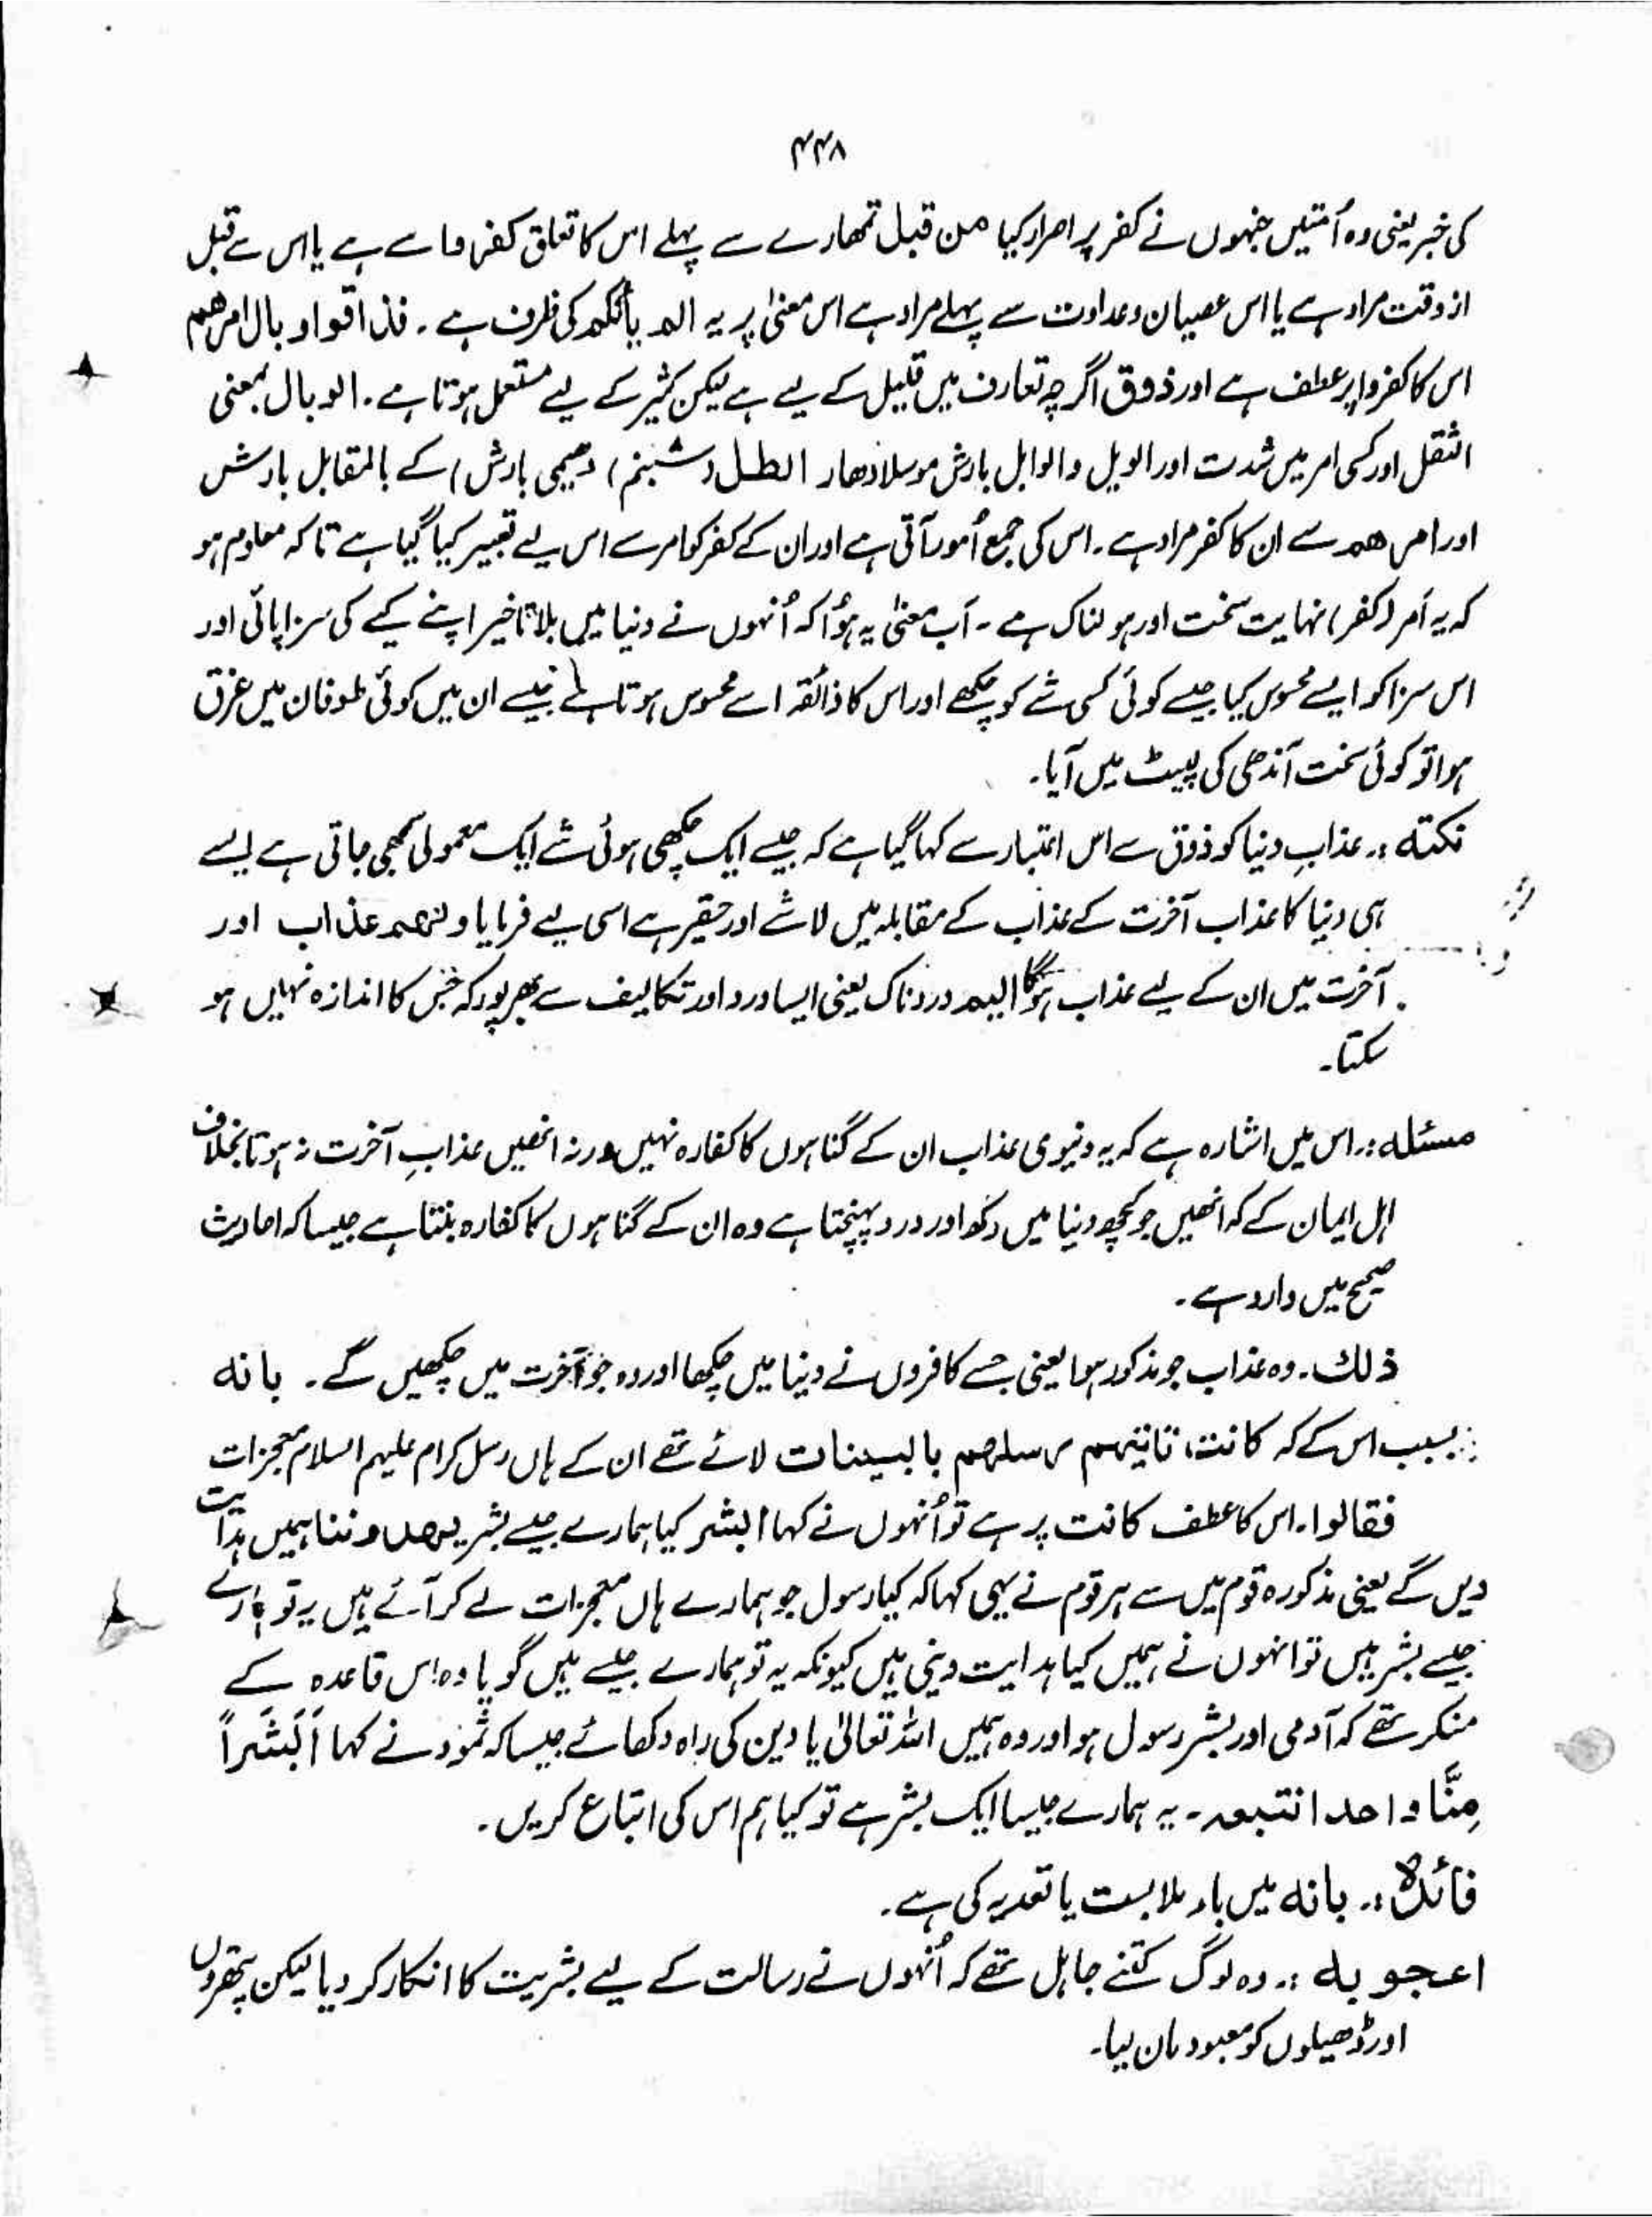 ۴۴۸
کی خبر یعنی وہ اُمتیں جنہوں نے کفر پر اصرار کیا من قبل تمھارے سے پہلے اس کا تعلق کفروا سے ہے یا اس سے قبل
از وقت مراد ہے یا اس عصیان و عداوت سے پہلے مراد ہے اس معنیٰ پر یہ الم یأتکم کی ظرف ہے ۔ فذاقوا وبال امرھم
اس کا کفروا پر عطف ہے اور ذوق اگرچہ تعارف میں قلیل کے لیے ہے لیکن کثیر کے لیے مستعمل ہوتا ہے ۔ الوبال بمعنی
الثقل اور کسی امر میں شدت اور الوبل و الوابل بارش موسلادھار الطل (شبنم) (دھیمی بارش) کے بالمقابل بارش
اور امرھم سے ان کا کفر مراد ہے ۔ اس کی جمع اُمور آتی ہے اور ان کے کفر کو امر سے اس لیے تعبیر کیا گیا ہے تاکہ معلوم ہو
کہ یہ اَمر (کفر) نہایت سخت اور ہولناک ہے ۔ اَب معنیٰ یہ ہُوا کہ اُنہوں نے دنیا میں بلا تاخیر اپنے کیے کی سزا پائی اور
اس سزا کو ایسے محسوس کیا جیسے کوئی کسی شے کو چکھے اور اس کا ذائقہ اسے محسوس ہوتا ہے جیسے ان میں کوئی طوفان میں غرق
ہوا تو کوئی سخت آندھی کی لپیٹ میں آیا ۔
نکتہ :۔ عذابِ دنیا کو ذوق سے اس اعتبار سے کہا گیا ہے کہ جیسے ایک چکھی ہوئی شے ایک معمولی سمجھی جاتی ہے ایسے
ہی دنیا کا عذاب آخرت کے عذاب کے مقابلہ میں لاشے اور حقیر ہے اسی لیے فرمایا ولھم عذاب اور
آخرت میں ان کے لیے عذاب ہوگا الیم دردناک یعنی ایسا درد اور تکالیف سے بھرپور کہ جس کا اندازہ نہیں ہو
سکتا ۔
مسئلہ :۔ اس میں اشارہ ہے کہ یہ دنیوی عذاب ان کے گناہوں کا کفارہ نہیں ورنہ انھیں عذابِ آخرت نہ ہوتا بخلاف
اہل ایمان کے کہ انھیں جو کچھ دنیا میں دکھ اور درد پہنچتا ہے وہ ان کے گناہوں کا کفارہ بنتا ہے جیسا کہ احادیث
صحیح میں وارد ہے ۔
ذٰلك ۔ وہ عذاب جو مذکور ہوا یعنی جسے کافروں نے دنیا میں چکھا اور وہ جو آخرت میں چکھیں گے ۔ بانه
بسبب اس کے کہ کانت تاتیھم رسلھم بالبینات لائے تھے ان کے ہاں رسل کرام علیہم السلام معجزات
فقالوا ۔ اس کا عطف کانت پر ہے تو اُنہوں نے کہا أبشر کیا ہمارے جیسے بشر یھدوننا ہمیں ہدایت
دیں گے یعنی مذکورہ قوم میں سے ہر قوم نے یہی کہا کہ کیا رسول جو ہمارے ہاں معجزات لے کر آئے ہیں یہ تو ہمارے
جیسے بشر ہیں تو انہوں نے ہمیں کیا ہدایت دینی ہیں کیونکہ یہ تو ہمارے جیسے ہیں گویا وہ اس قاعدہ کے
منکر تھے کہ آدمی اور بشر رسول ہو اور وہ ہمیں اللہ تعالیٰ یا دین کی راہ دکھائے جیسا کہ ثمود نے کہا اَبَشَراً
مِنَّا واحدا نتبعہ ۔ یہ ہمارے جیسا ایک بشر ہے تو کیا ہم اس کی اتباع کریں ۔
فائدہ :۔ بانه میں باء ملابست یا تعدیہ کی ہے ۔
اعجوبہ :۔ وہ لوگ کتنے جاہل تھے کہ اُنہوں نے رسالت کے لیے بشریت کا انکار کر دیا لیکن پتھروں
اور ڈھیلوں کو معبود مان لیا ۔